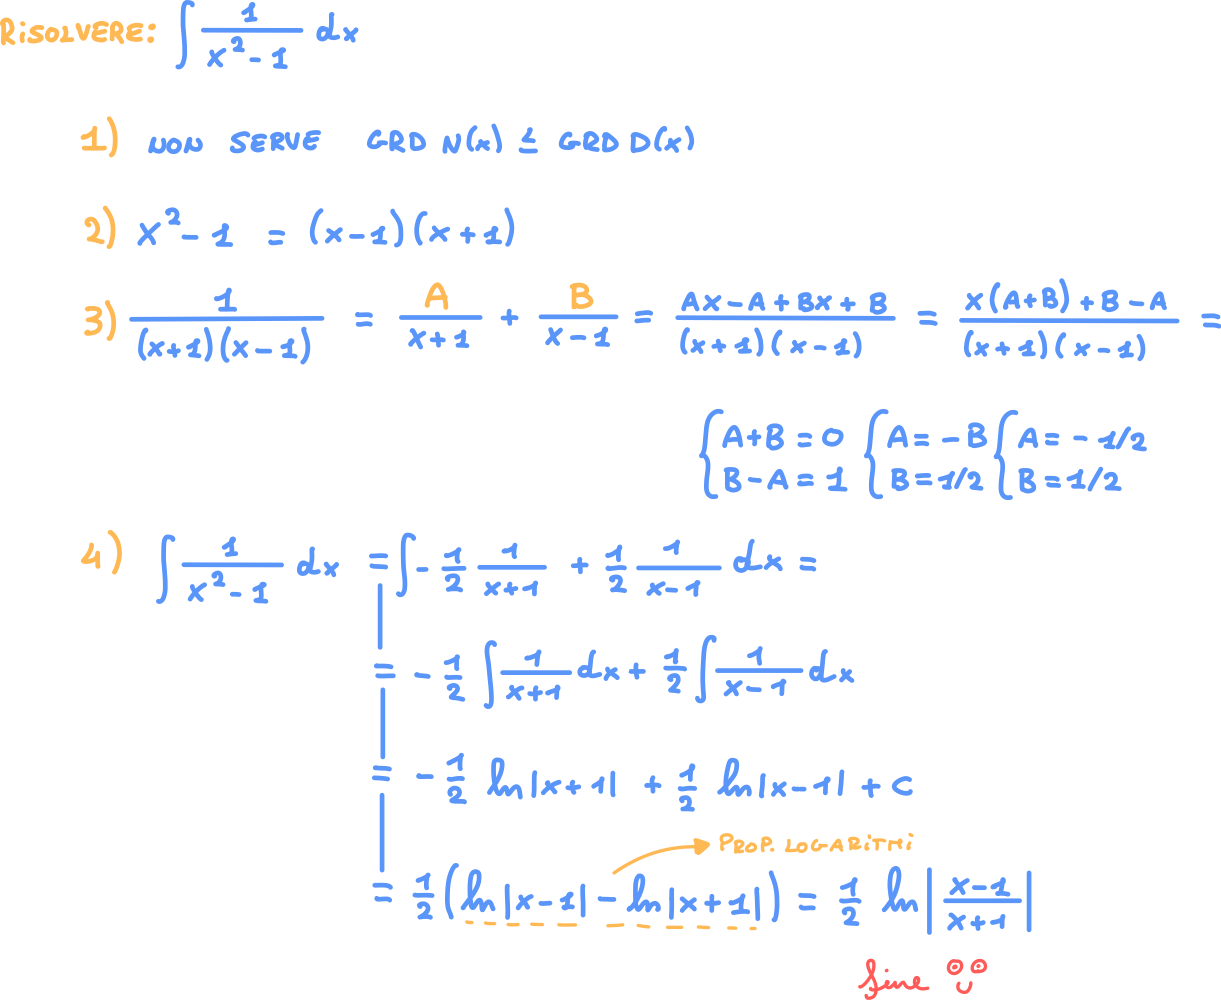 RiSOLVERE: ∫ 1/(x²-1) dx
1) NON SERVE GRD N(x) ≤ GRD D(x)
2) x²-1 = (x-1)(x+1)
3) 1/((x+1)(x-1)) = A/(x+1) + B/(x-1) = (Ax-A+Bx+B)/((x+1)(x-1)) = (x(A+B)+B-A)/((x+1)(x-1)) =
{A+B=0 {A=-B {A=-1/2
{B-A=1 {B=1/2 {B=1/2
4) ∫ 1/(x²-1) dx = ∫ -1/2 1/(x+1) + 1/2 1/(x-1) dx =
= -1/2 ∫ 1/(x+1) dx + 1/2 ∫ 1/(x-1) dx
= -1/2 ln|x+1| + 1/2 ln|x-1| + c
PROP. LOGARiTMi
= 1/2 (ln|x-1| - ln|x+1|) = 1/2 ln|(x-1)/(x+1)|
fine